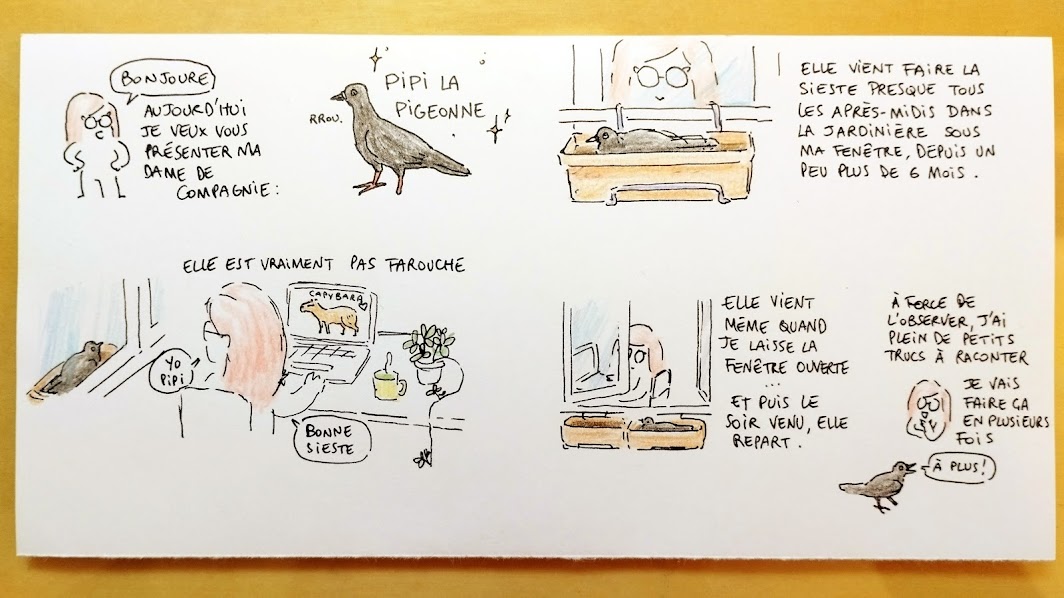 BONJOURE
AUJOURD'HUI
JE VEUX VOUS
PRÉSENTER MA
DAME DE
COMPAGNIE :
RROU.
PIPI LA
PIGEONNE
ELLE VIENT FAIRE LA
SIESTE PRESQUE TOUS
LES APRÈS-MIDIS DANS
LA JARDINIÈRE SOUS
MA FENÊTRE, DEPUIS UN
PEU PLUS DE 6 MOIS.
ELLE EST VRAIMENT PAS FAROUCHE
CAPYBARA
YO
PIPI
BONNE
SIESTE
ELLE VIENT
MÊME QUAND
JE LAISSE LA
FENÊTRE OUVERTE
...
ET PUIS LE
SOIR VENU, ELLE
REPART.
À FORCE DE
L'OBSERVER, J'AI
PLEIN DE PETITS
TRUCS À RACONTER
JE VAIS
FAIRE ÇA
EN PLUSIEURS
FOIS
À PLUS!